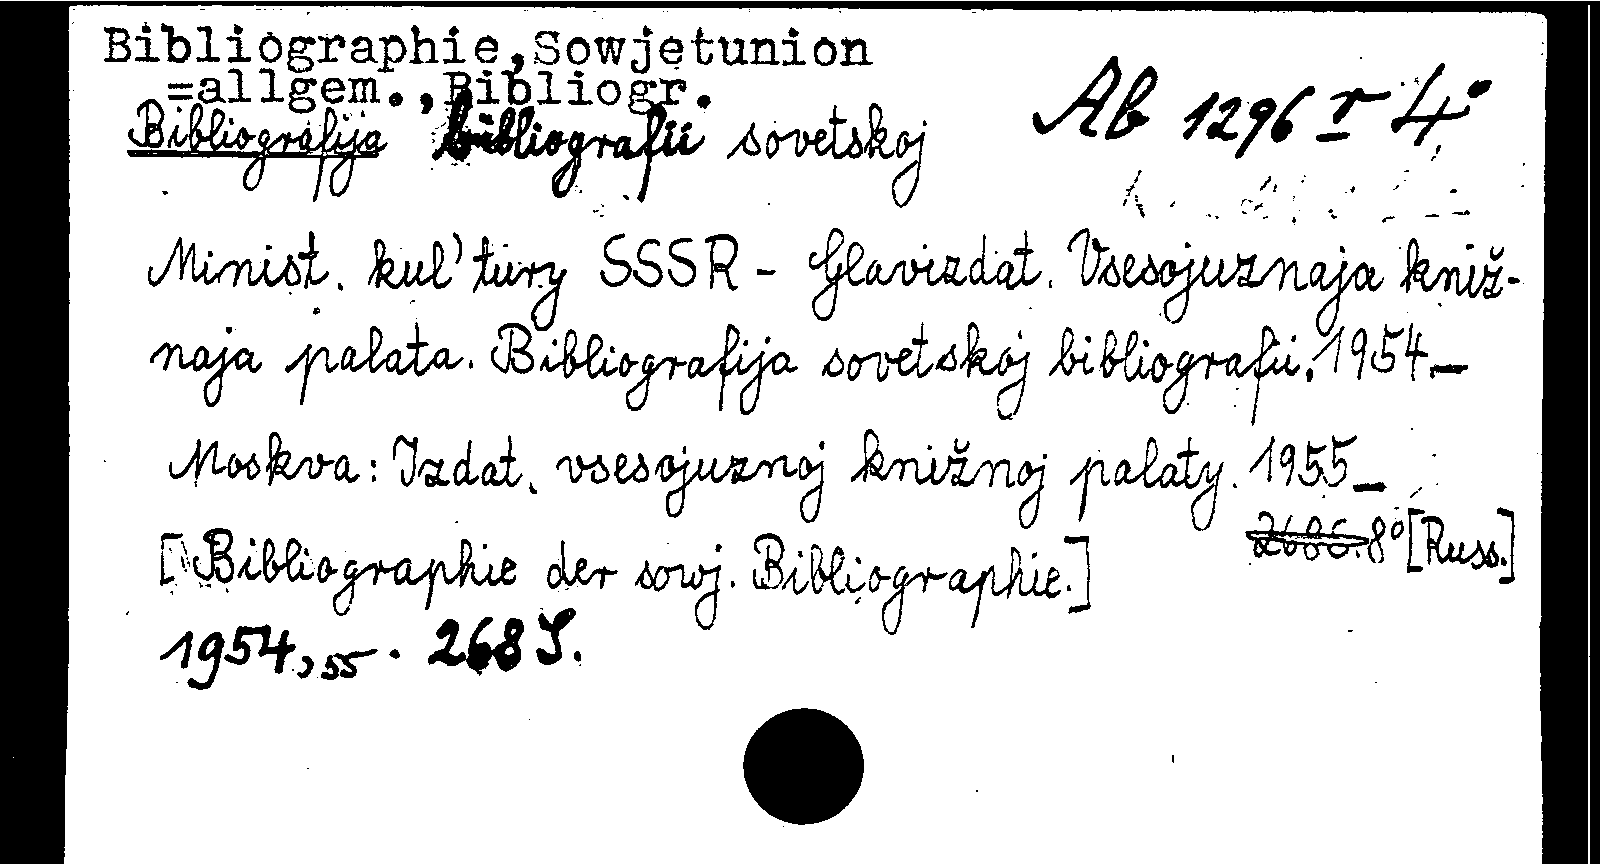 Bibliographie,Sowjetunion
=allgem.,Bibliogr.
Bibliografija bibliografii sovetskoj
Ab 1296 r 4°
Minist. kul'tury SSSR - Glavizdat. Vsesojuznaja kniž-
naja palata. Bibliografija sovetskoj bibliografii. 1954.—
Moskva: Izdat. vsesojuznoj knižnoj palaty. 1955—
8° [Russ.]
[Bibliographie der sowj. Bibliographie.]
1954,55. 268 S.